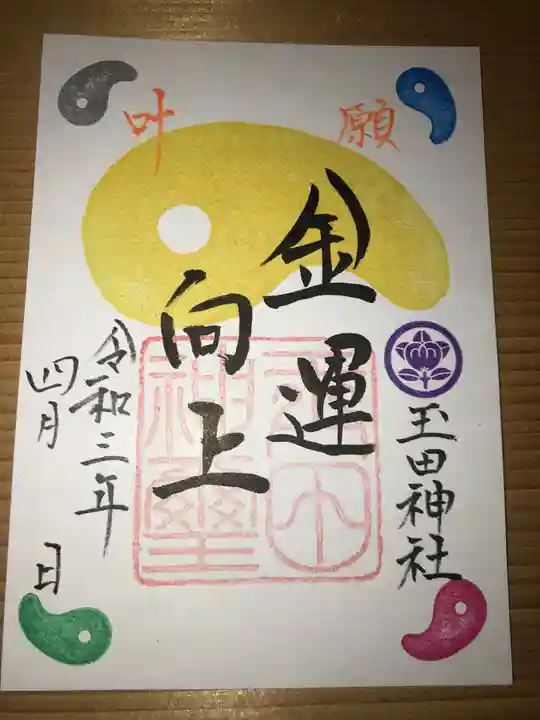 願
叶
金運
向上
玉田神社
令和三年
四月
日